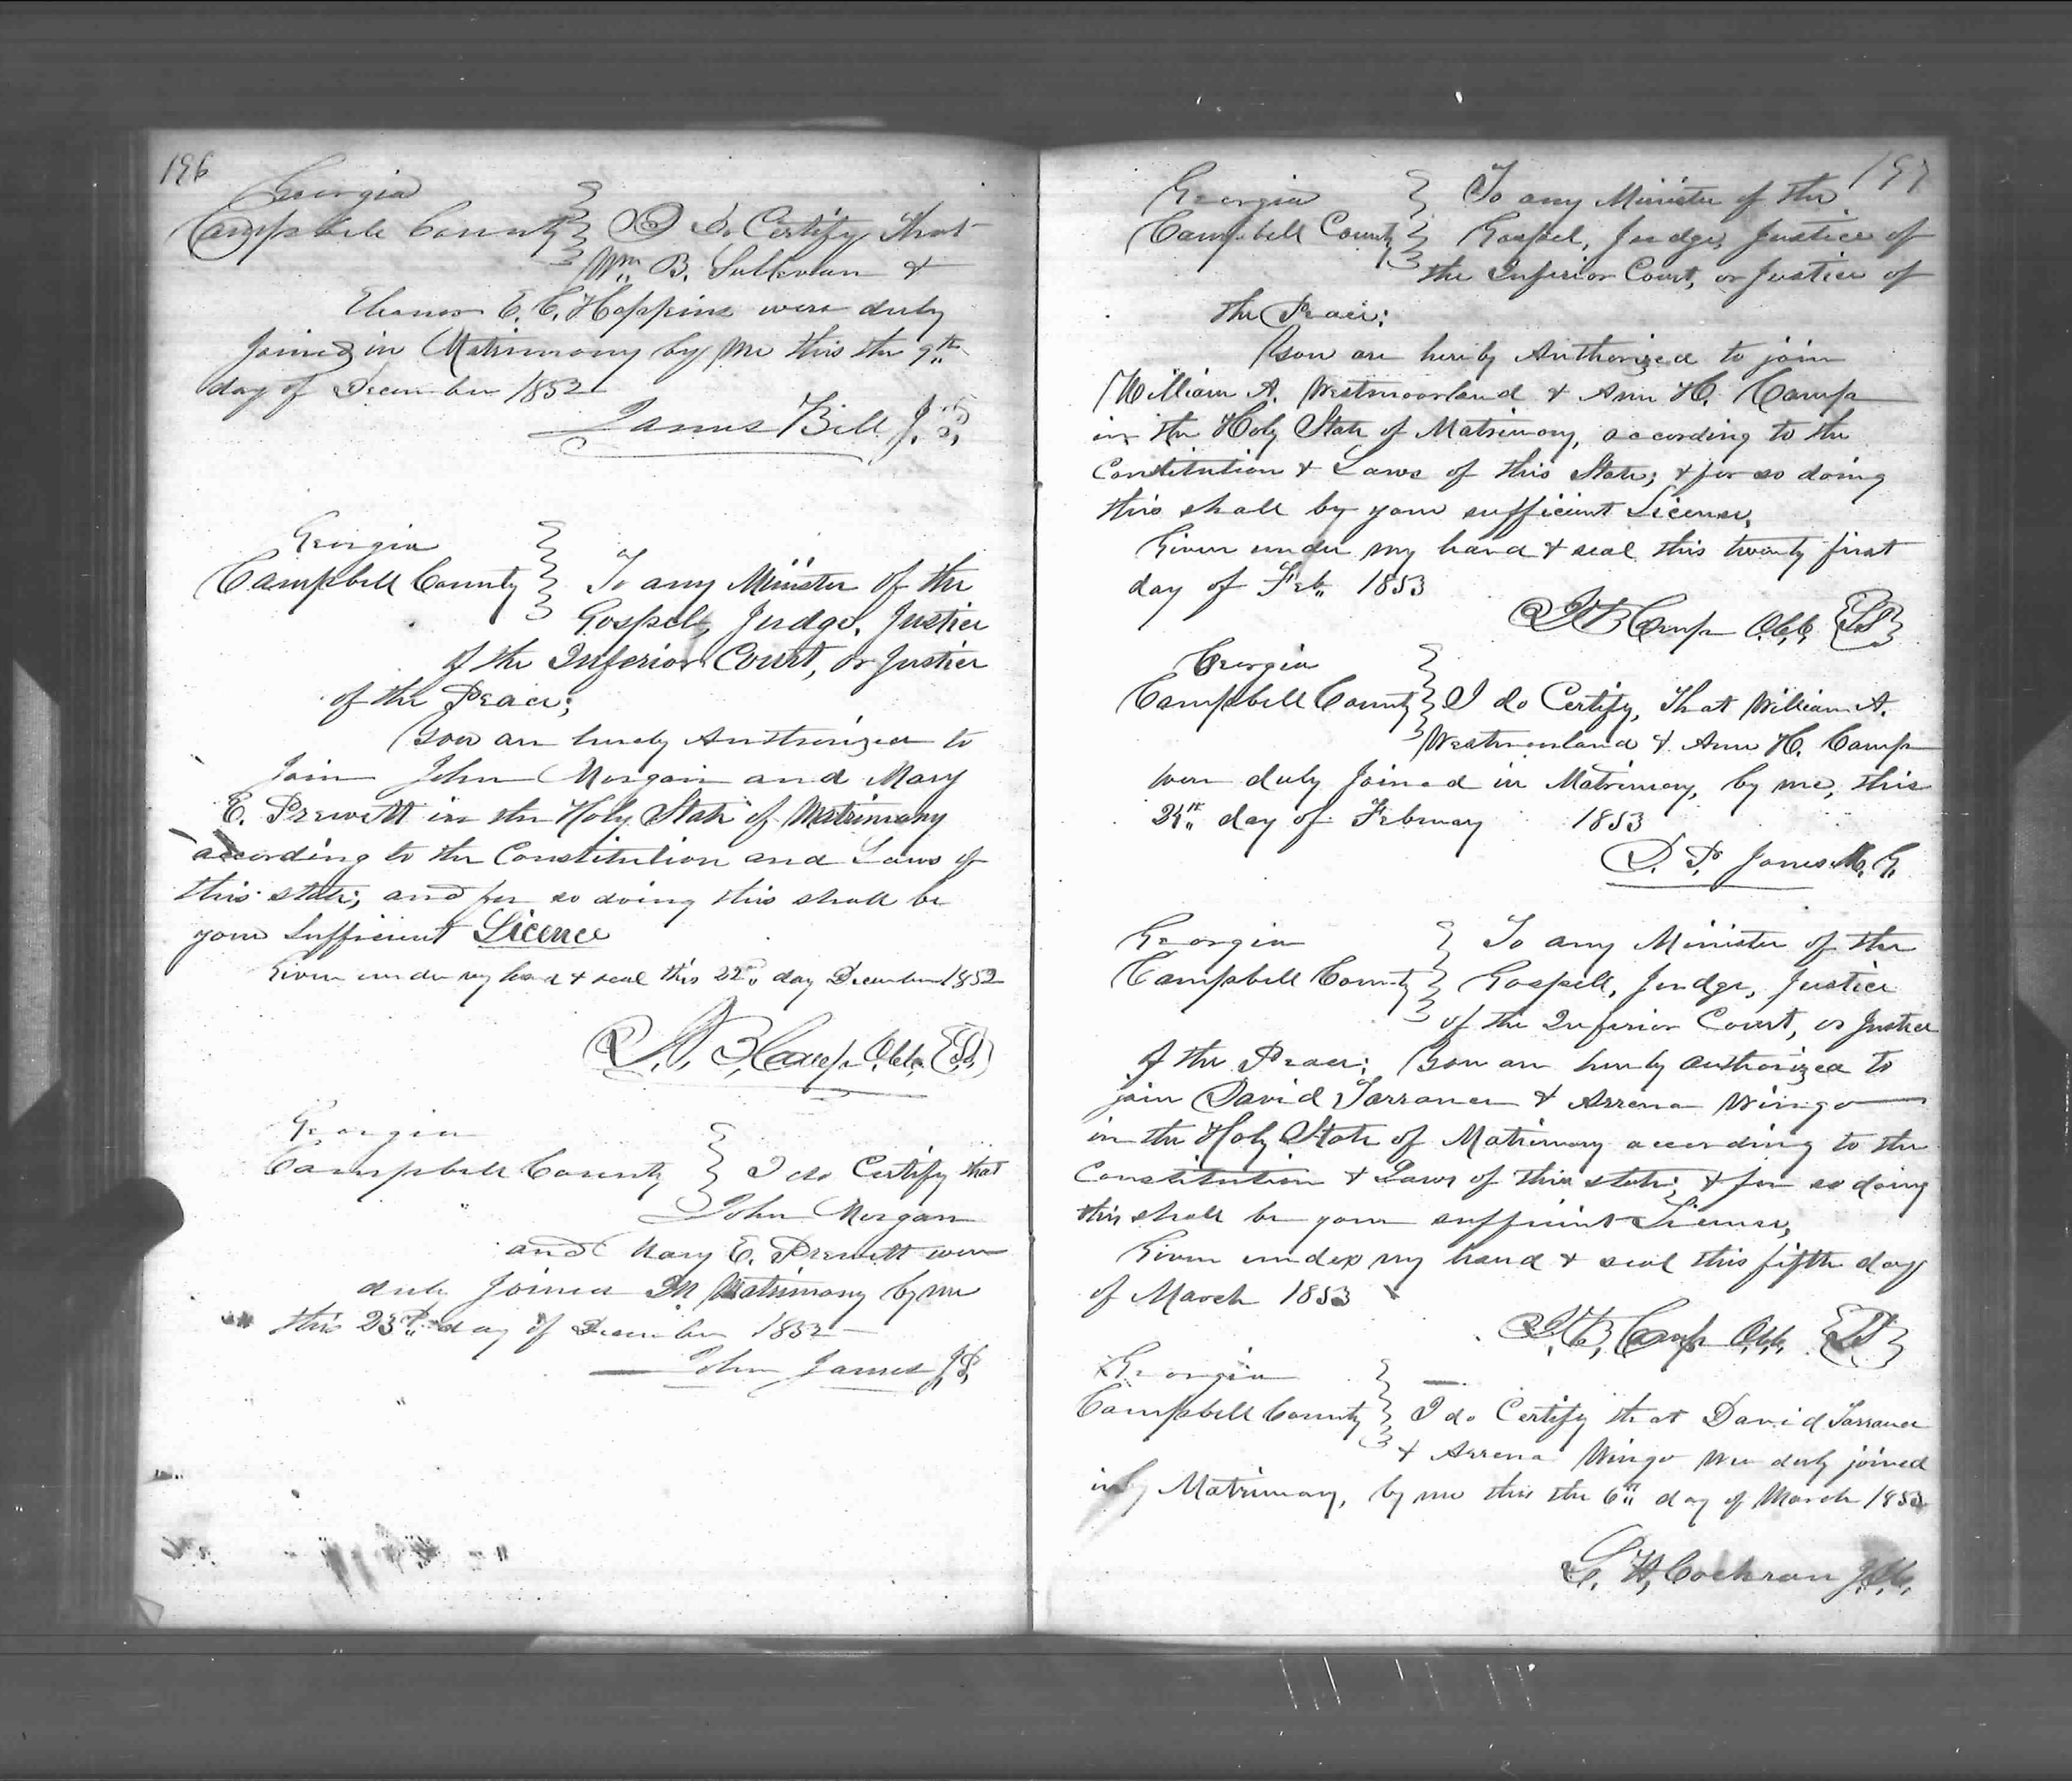 196
Georgia
Campbell County I Do Certify that
Wm B. Sullivan &
Eleanor E. C. Hoppins were duly
Joined in Matrimony by me this the 9th
day of December 1852
James Bell J.P.
Georgia
Campbell County To any Minister of the
Gospel, Judge, Justice
of the Inferior Court, or Justice
of the Peace;
You are hereby Authorized to
Join John Morgan and Mary
E. Prewett in the Holy State of Matrimony
according to the Constitution and Laws of
this state; and for so doing this shall be
your sufficient Licence
Given under my hand & seal this 22d day December 1852
R. B. Camp C.C.O. (LS)
Georgia
Campbell County I do Certify that
John Morgan
and Mary E. Prewett were
duly Joined In Matrimony by me
this 23d day of December 1852
John James J.P.
197
Georgia To any Minister of the
Campbell County Gospel, Judge, Justice of
the Inferior Court, or Justice of
the Peace;
You are hereby Authorized to join
William A. Westmoorland & Ann H. Camp
in the Holy State of Matrimony, according to the
Constitution & Laws of this State; & for so doing
this shall by your sufficient License,
Given under my hand & seal this twenty first
day of Feb. 1853
R B Camp C.C.O. {LS}
Georgia
Campbell County I do Certify, that William A.
Westmorland & Ann H. Camp
were duly Joined in Matrimony, by me, this
24th day of February 1853
D. P. Jones M.G.
Georgia To any Minister of the
Campbell County Gospell, Judge, Justice
of the Inferior Court, or Justice
of the Peace; You are hereby authorized to
join David Torrance & Arrena Wingo
in the Holy State of Matrimony according to the
Constitution & Laws of this state; & for so doing
this shall be your sufficient License,
Given under my hand & seal this fifth day
of March 1853
R. B. Camp C.C.O. {LS}
Georgia
Campbell County I do Certify that David Torrance
& Arrena Wingo were duly joined
in Matrimony, by me this the 6th day of March 1853
L. H. Cochran